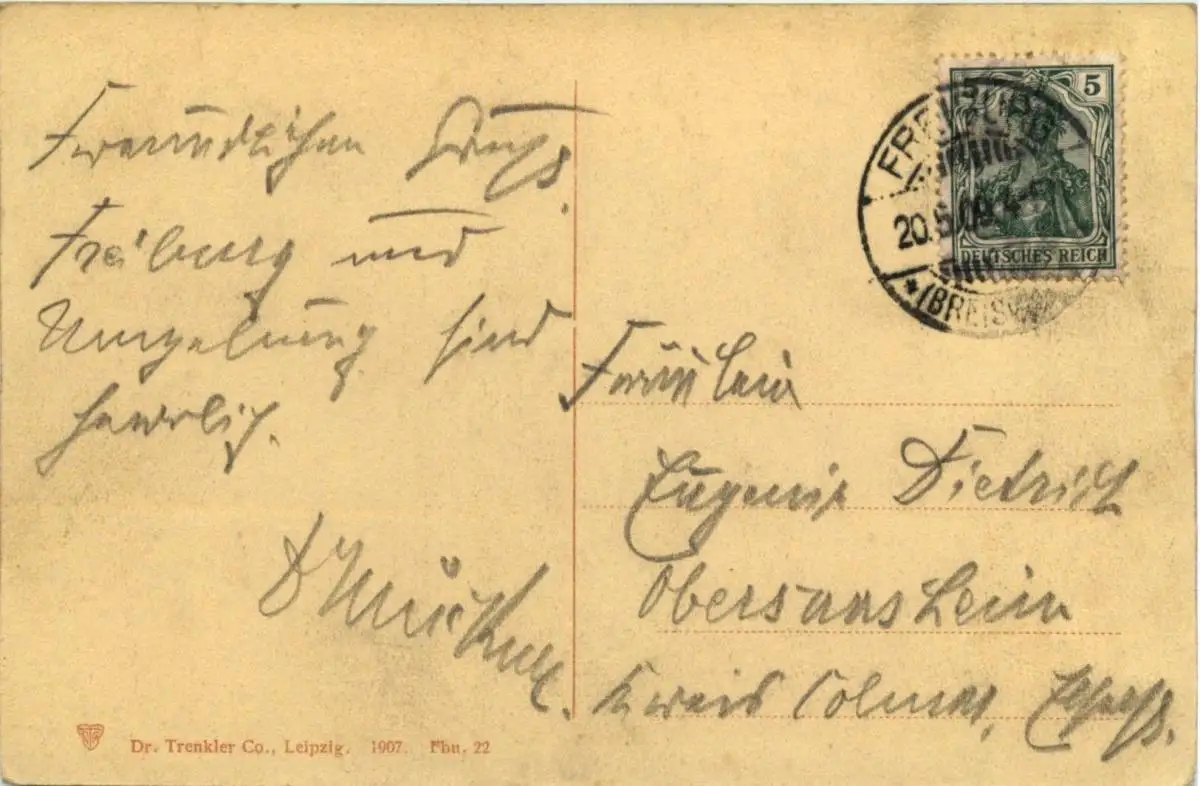 Freundlichen Gruß.
Freiburg und
Umgebung sind
herrlich.
5
FREIBURG
20.5.09.
DEUTSCHES REICH
*(BREISG
Fräulein
Eugenie Dietrich
Obersaasheim
Kreis Colmar, Elsaß.
Dr. Trenkler Co., Leipzig. 1907. Fbu. 22